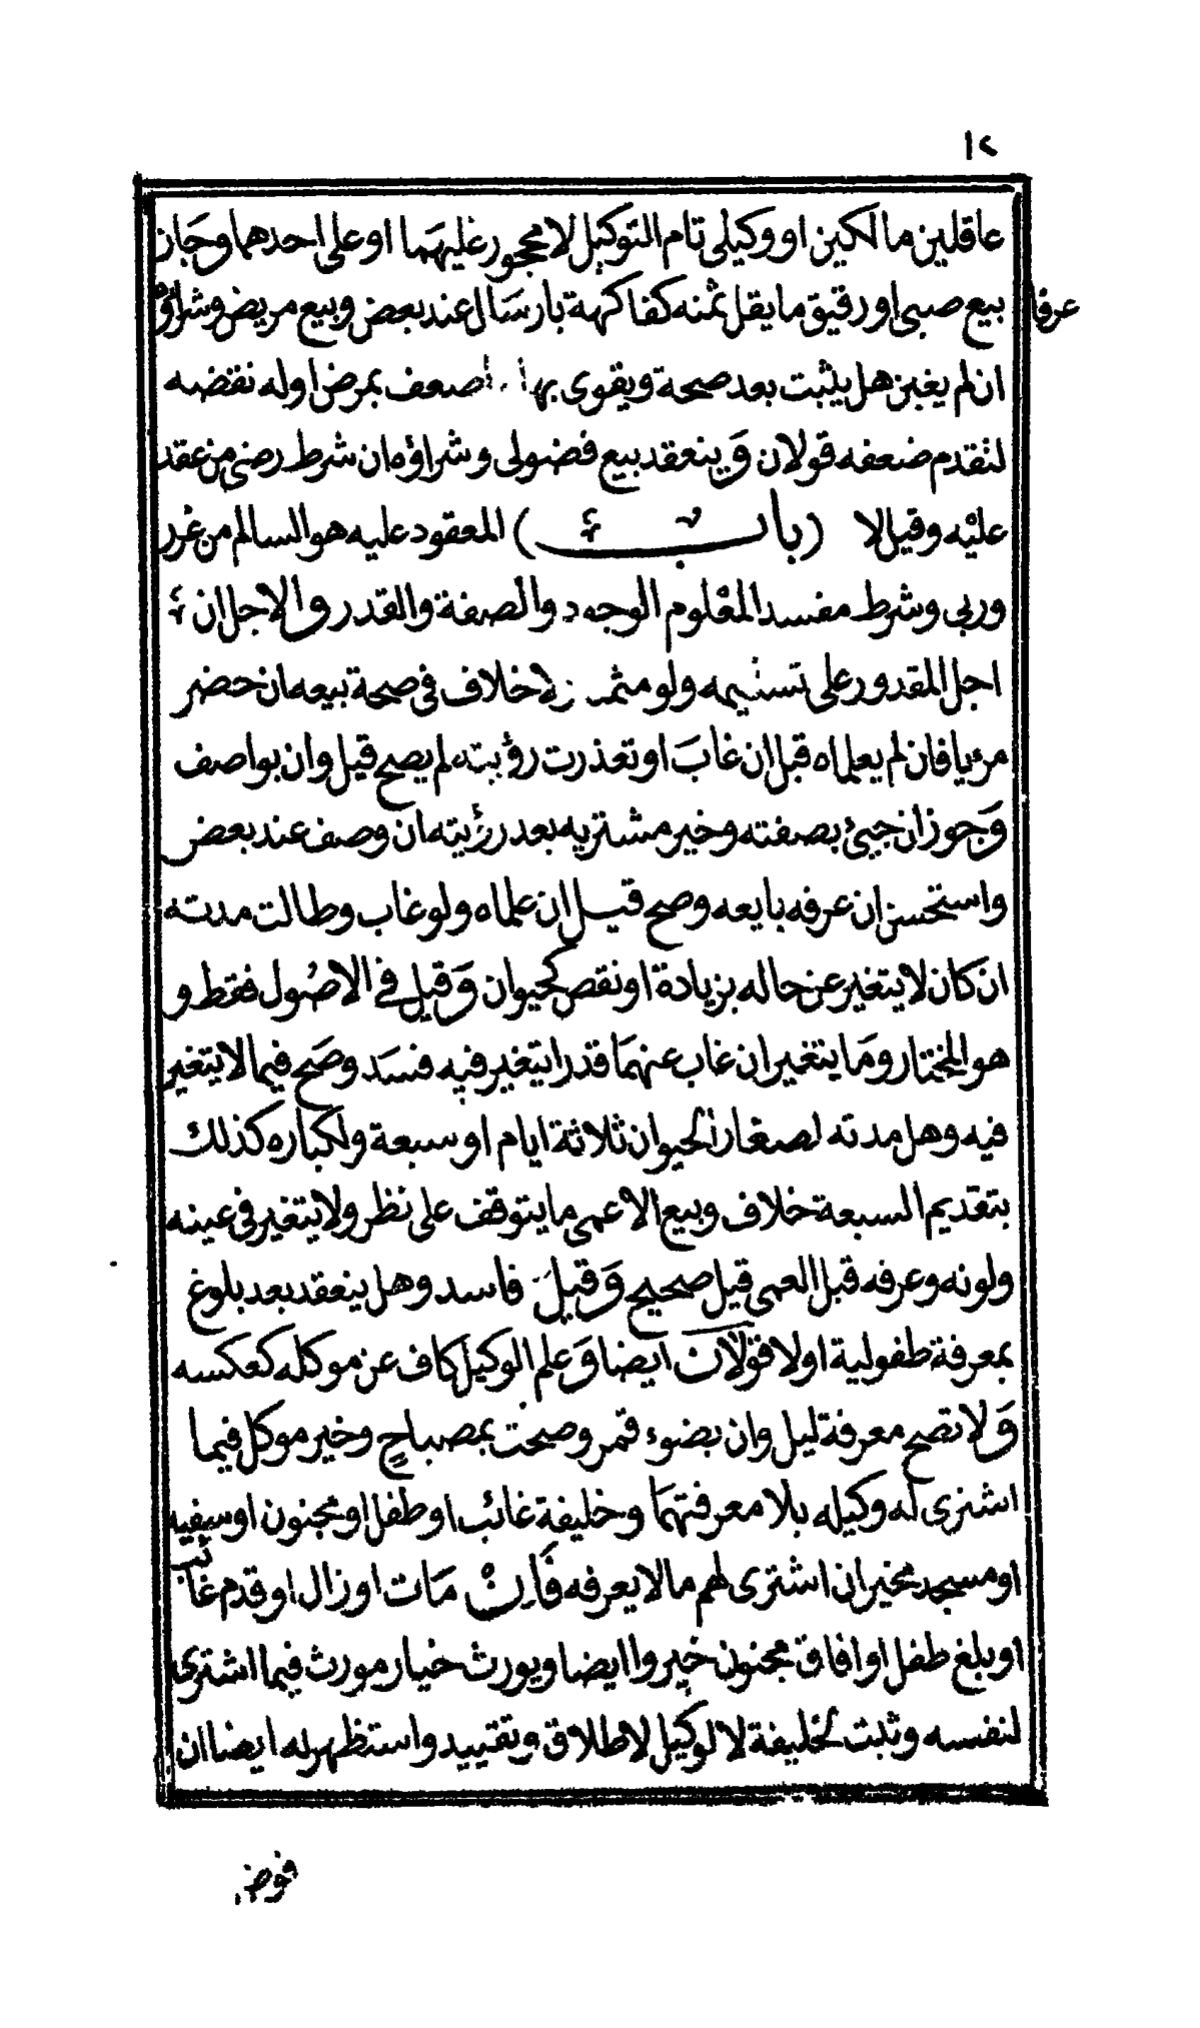 ١٢
عاقلين مالكين او وكيلي تام التوكيل لا محجور عليهما او على احدهما وجاز
بيع صبي او رقيق ما يقل ثمنه كفاكهة بارسال عند بعض وبيع مريض وشراؤه
عرفا
ان لم يغبن هل يثبت بعد صحة ويقوى بها صعف بمرض اوله نقضه
لتقدم ضعفه قولان وينعقد بيع فضولى وشراؤه ان شرط رضى من عقد
عليه وقيل لا (باب) المعقود عليه هو السالم من غرر
وربى وشرط مفسد المعلوم الوجود والصفة والقدر والاجل ان
اجل المقدور على تسليمه ولو مثمر لا خلاف فى صحة بيعه ان حضر
مرءيا فان لم يعلماه قبل ان غاب او تعذرت رؤيته لم يصح قيل وان بواصف
وجوز ان جيئ بصفته وخير مشتريه بعد رؤيته ان وصف عند بعض
واستحسن ان عرفه بايعه وصح قيل ان علماه ولو غاب وطالت مدته
ان كان لا يتغير عن حاله بزيادة او نقص كحيوان وقيل في الاصول فقط و
هو المختار وما يتغير ان غاب عنهما قدر ايتغير فيه فسد وصح فيما لا يتغير
فيه وهل مدته لصغار الحيوان ثلاثة ايام او سبعة ولكباره كذلك
بتقديم السبعة خلاف وبيع الاعمى ما يتوقف على نظر ولا يتغير فى عينه
ولونه وعرفه قبل العمى قيل صحيح وقيل فاسد وهل ينعقد بعد بلوغ
بمعرفة طفولية اولا قولان ايضا وعلم الوكيل كاف عن موكله كعكسه
ولا تصح معرفة ليل وان بضوء قمر وصحت بمصباح وخير موكل فيما
اشترى له وكيله بلا معرفتهما وخليفة غائب او طفل او مجنون او سفيه
او مسجد مخير ان اشترى لهم مالا يعرفه فان مات او زال او قدم غائب
او بلغ طفل او افاق مجنون خيروا ايضا ويورث خيار مورث فيما اشترى
لنفسه وثبت لخليفة لا لوكيل لاطلاق وتقييد واستظهر له ايضا ان
فوض